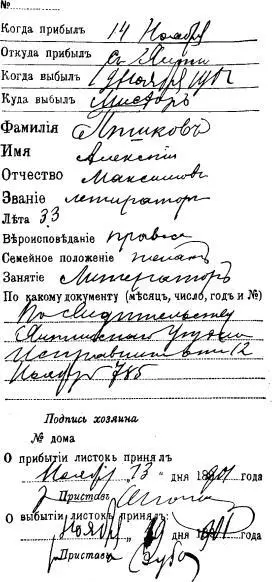 №
Когда прибылъ 14 Ноября
Откуда прибылъ съ Ялты
Когда выбылъ Ноября
Куда выбылъ
Фамилія Пѣшковъ
Имя Алексѣй
Отчество Максимовъ
Званіе литераторъ
Лѣта 33
Вѣроисповѣданіе правос
Семейное положеніе женатъ
Занятіе Литераторъ
По какому документу (мѣсяцъ, число, годъ и №)
По свидѣтельству
Ялтинскаго Уѣздно
Исправника отъ 12
Ноября 785
Подпись хозяина
№ дома
О прибытіи листокъ принялъ
Ноября 13 дня 1901 года
Приставъ
О выбытіи листокъ принялъ:
Ноября 19 дня 1901 года
Приставъ